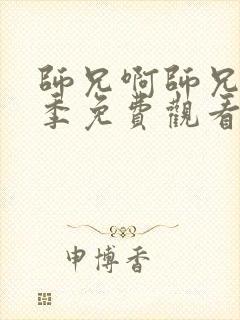 師兄啊師兄
季免費觀看
申博香